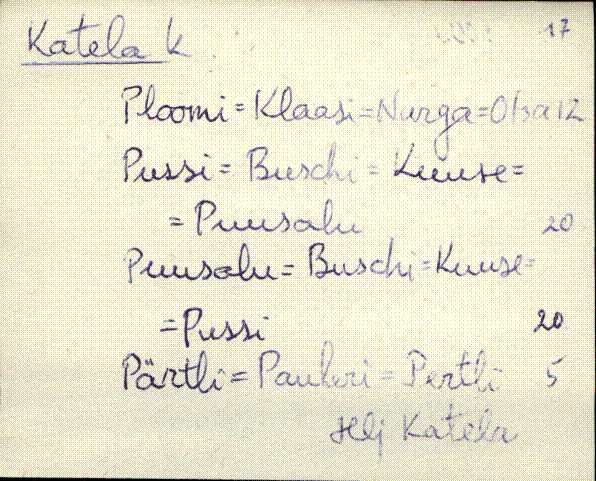 17
Katela k.
Ploomi = Klaasi = Nurga = Otsa 12
Pussi = Buschi = Kuuse =
= Puusalu 20
Puusalu = Buschi = Kuuse =
= Pussi 20
Pärtli = Paulsri = Pertli 5
Hlj Katela